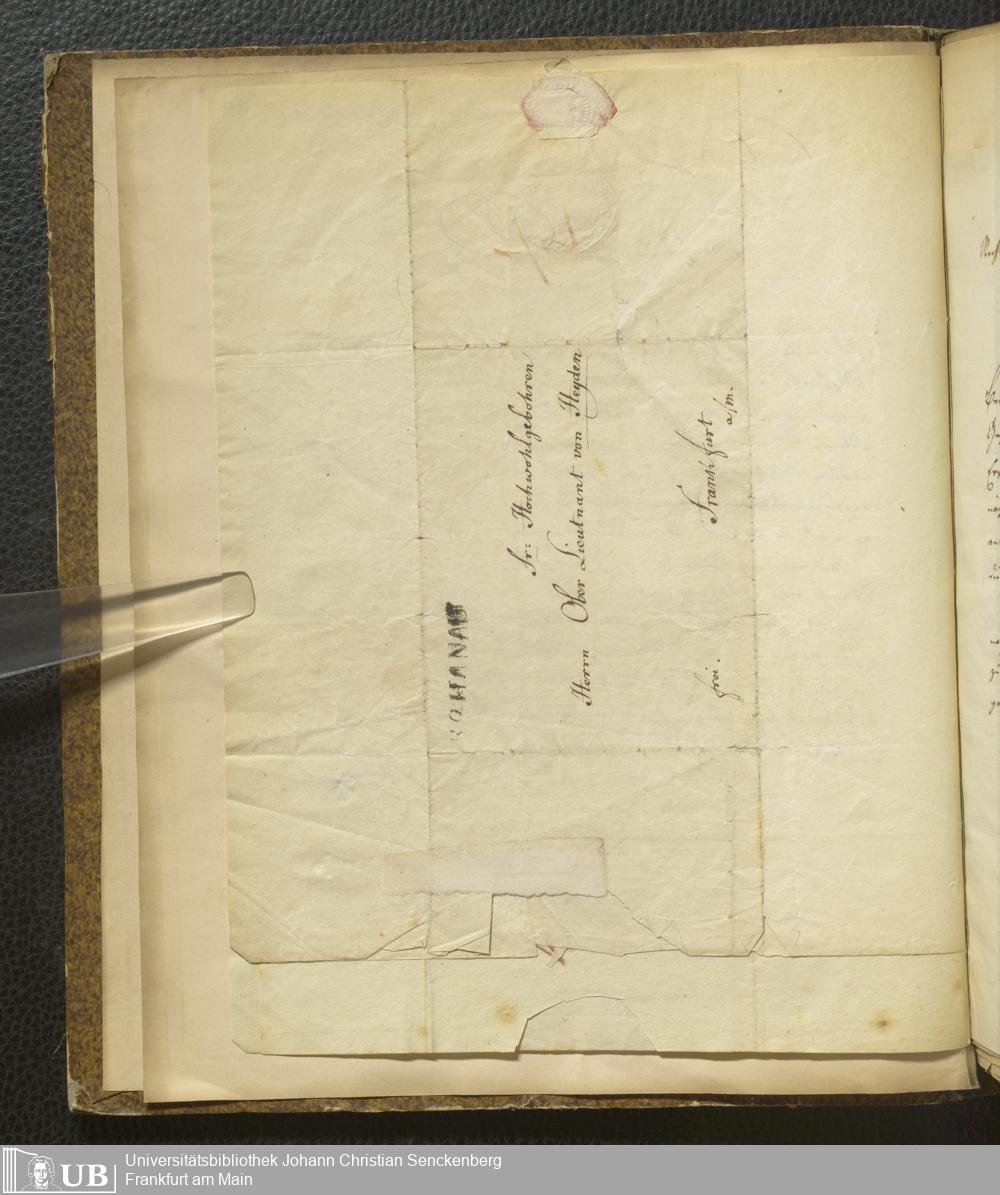 HANAU
Sr: Hochwohlgebohren
Herrn Ober Lieutnant von Heyden
Frankfurt
a/m.
frei.
UB
Universitätsbibliothek Johann Christian Senckenberg
Frankfurt am Main